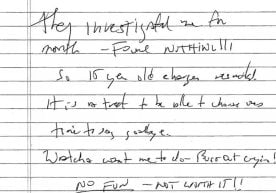 they investigated me for
month - Found NOTHING!!!
So 15 year old charges
It is a treat to be able to choose ones
time to say goodbye.
want me to do - Burst out crying!
NO FUN - NOT WORTH IT!!